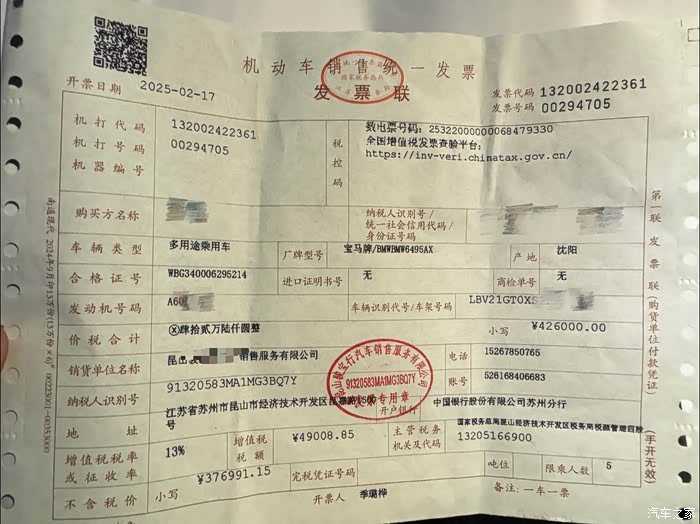 机动车销售统一发票
发票联
开票日期 2025-02-17
发票代码 132002422361
发票号码 00294705
机打代码 132002422361
机打号码 00294705
机器编号
税控码
致电票号码: 25322000000068479330
全国增值税发票查验平台:
https://inv-veri.chinatax.gov.cn/
购买方名称
纳税人识别号/
统一社会信用代码/
身份证号码
车辆类型 多用途乘用车 厂牌型号 宝马牌/BMWBMW6495AX 产地 沈阳
合格证号 WBG340006295214 进口证明书号 无 商检单号 无
发动机号码 A60 车辆识别代号/车架号码 LBV21GT0XS
价税合计 ⓧ肆拾贰万陆仟圆整 小写 ¥426000.00
销货单位名称 昆山 销售服务有限公司 电话 15267850765
纳税人识别号 91320583MA1MG3BQ7Y 账号 526168406683
地址 江苏省苏州市昆山市经济技术开发区昆嘉路1500号 开户银行 中国银行股份有限公司苏州分行
增值税税率或征收率 13% 增值税税额 ¥49008.85 主管税务机关及代码 国家税务总局昆山经济技术开发区税务局税源管理四股
13205166900
不含税价 小写 ¥376991.15 完税凭证号码 吨位 限乘人数 5
开票人 季璐桦 备注: 一车一票
第一联 发票联 (购货单位付款凭证)
(手开无效)
91320583MA1MG3BQ7Y
汽车之家